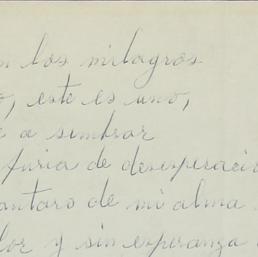 n los milagros
o, este es uno,
e a sembrar
furia de desesperació
antaro de mi alma
lor y sin esperanza